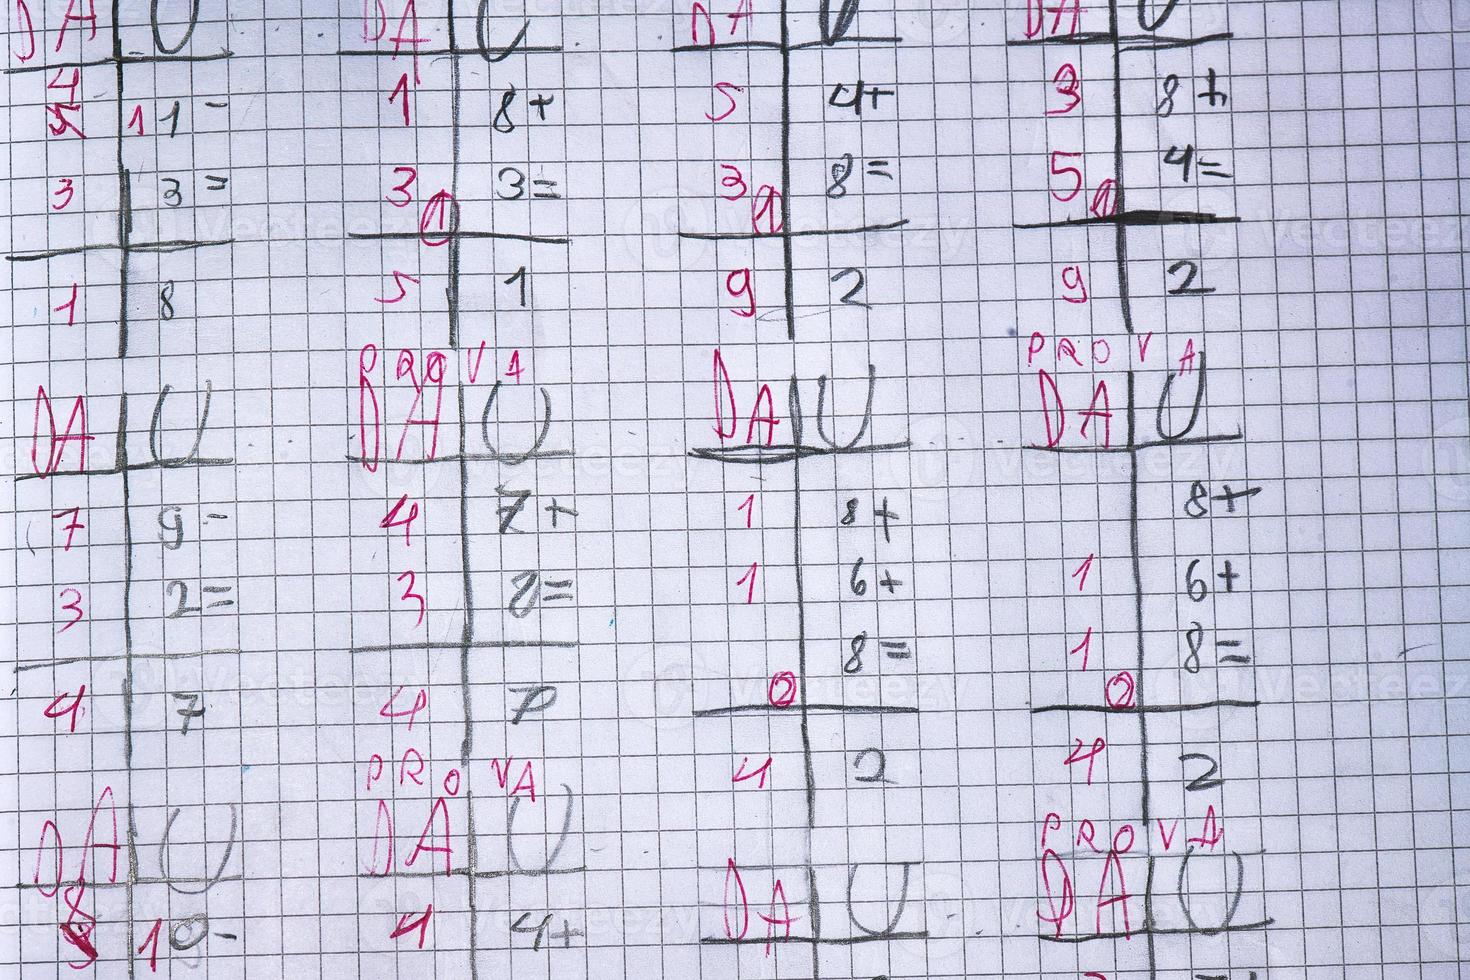 DA U
4
5 11 -
3 3 =
1 8
DA U
1 8+
3 3=
1
5 1
DA U
5 4+
3 8=
1
9 2
DA U
3 8+
5 4=
1
9 2
DA U
7 9 -
3 2=
4 7
PROVA
DA U
4 7+
3 2=
4 7
DA U
1 8+
1 6+
8=
2
4 2
PROVA
DA U
8+
1 6+
1 8=
2
4 2
DA U
8
10-
PROVA
DA U
4 4+
DA U
PROVA
DA U